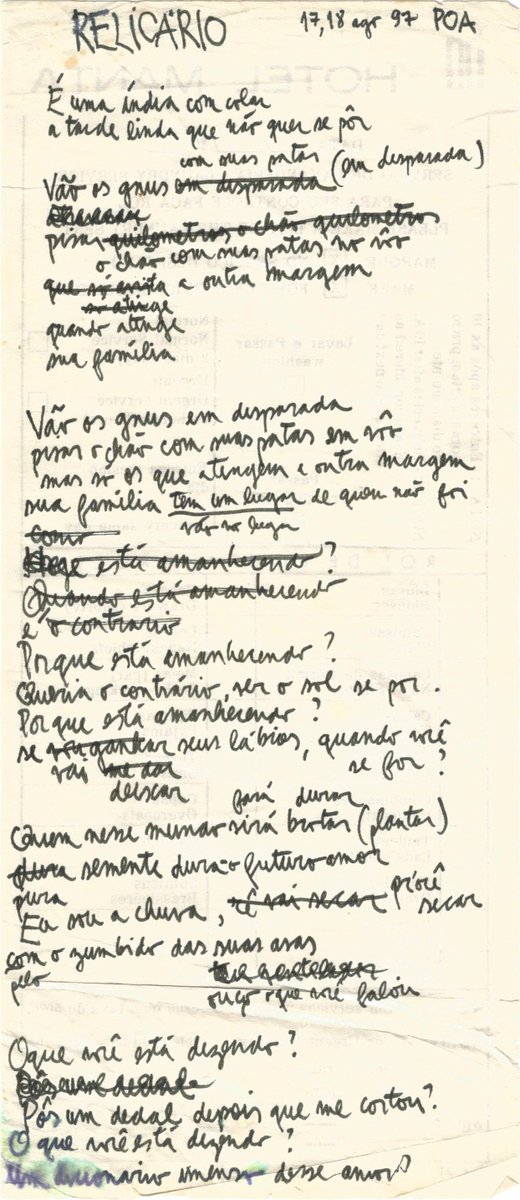 RELICÁRIO 17,18 ago 97 POA
É uma índia com colar
a tarde linda que não quer se pôr
com suas patas
Vão os gnus em disparada (em disparada)
pisar quilometros o chão quilometros
o chão com suas patas no vôo
que só avista a outra margem
só atinge
quando atinge
sua família
Vão os gnus em disparada
pisar o chão com suas patas em vôo
mas só os que atingem a outra margem
sua família tem um lugar de quem não foi
vão no lugar
como
Hoje está amanhecendo?
Quando está amanhecendo
é o contrário
Porque está amanhecendo?
Queria o contrário, ver o sol se por.
Porque está amanhecendo?
se seus lábios, quando você
vai me dar se for?
deixar
fará durar
Quem nesse mundo virá brotar (plantar)
dura semente dura o futuro amor
pura
Eu sou a chuva, cê vai secar p'rocê
secar
com o zumbido das suas asas
pelo
ouço o que você falou
O que você está dizendo?
Pôs um dedal
Pôs um dedal, depois que me cortou?
O que você está dizendo?
Um dicionário imenso desse amor?